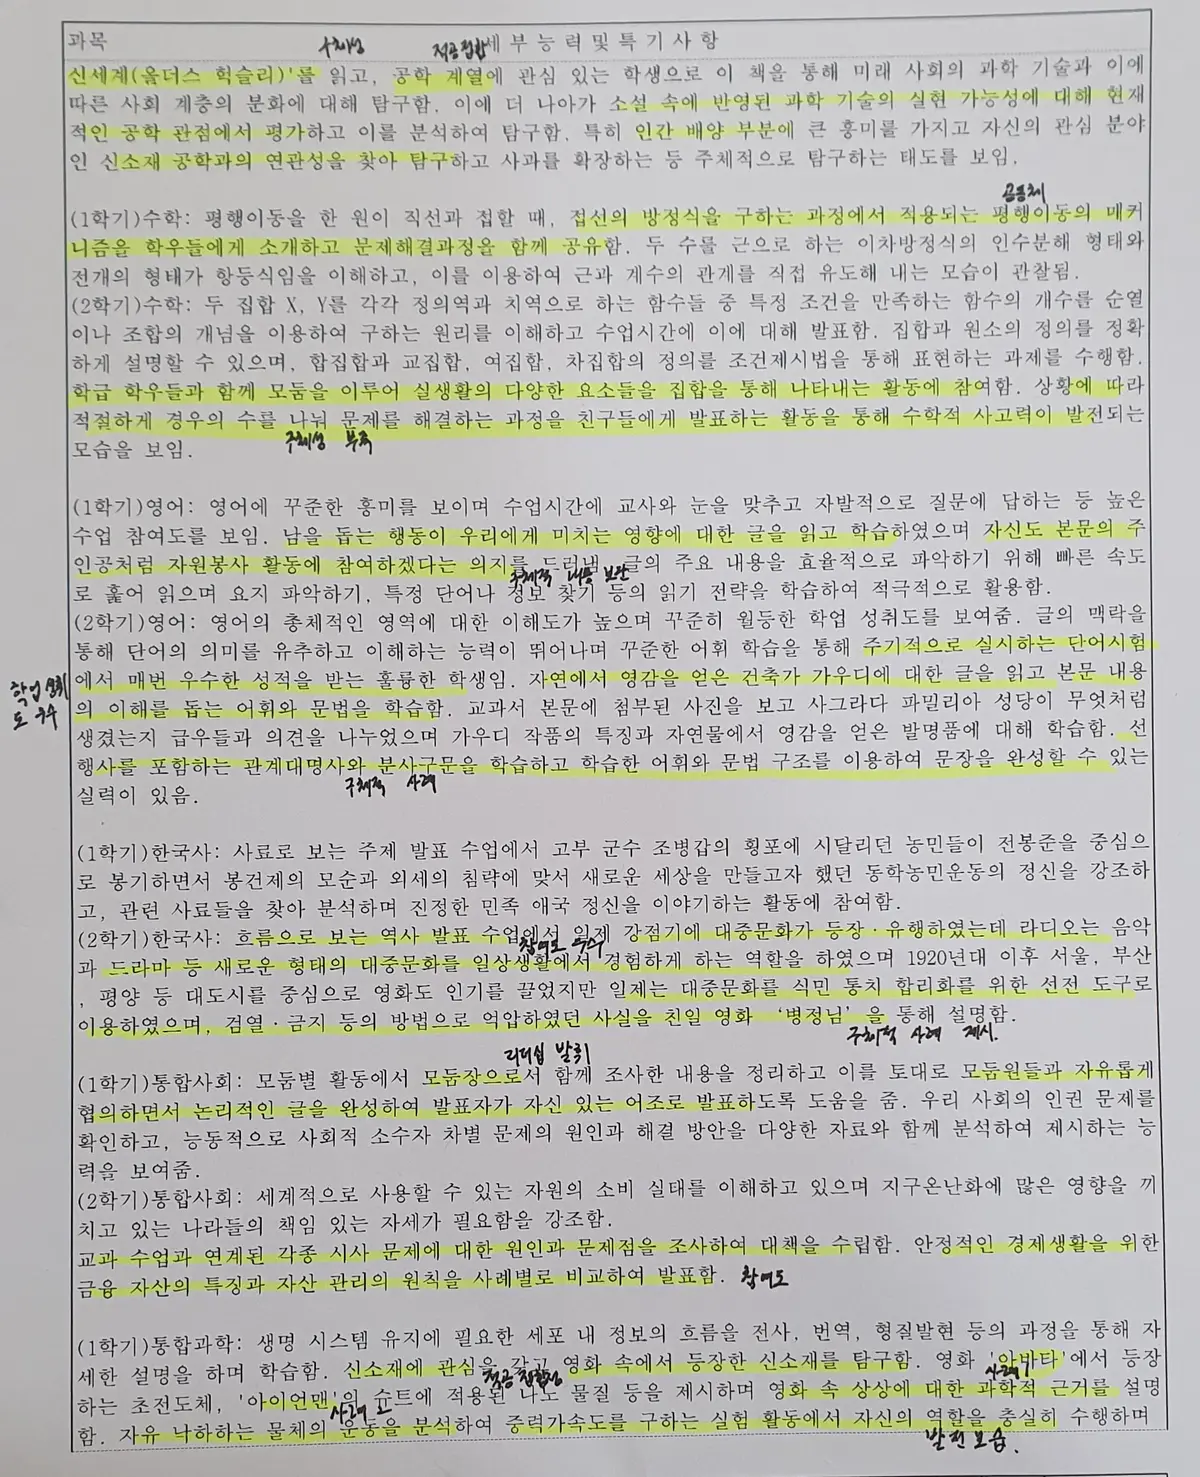 구체성 전공접합
과목 세부능력및특기사항
신세계(올더스 헉슬리)'를 읽고, 공학 계열에 관심 있는 학생으로 이 책을 통해 미래 사회의 과학 기술과 이에
따른 사회 계층의 분화에 대해 탐구함. 이에 더 나아가 소설 속에 반영된 과학 기술의 실현 가능성에 대해 현재
적인 공학 관점에서 평가하고 이를 분석하여 탐구함. 특히 인간 배양 부분에 큰 흥미를 가지고 자신의 관심 분야
인 신소재 공학과의 연관성을 찾아 탐구하고 사과를 확장하는 등 주체적으로 탐구하는 태도를 보임.
공동체
(1학기)수학: 평행이동을 한 원이 직선과 접할 때, 접선의 방정식을 구하는 과정에서 적용되는 평행이동의 메커
니즘을 학우들에게 소개하고 문제해결과정을 함께 공유함. 두 수를 근으로 하는 이차방정식의 인수분해 형태와
전개의 형태가 항등식임을 이해하고, 이를 이용하여 근과 계수의 관계를 직접 유도해 내는 모습이 관찰됨.
(2학기)수학: 두 집합 X, Y를 각각 정의역과 치역으로 하는 함수들 중 특정 조건을 만족하는 함수의 개수를 순열
이나 조합의 개념을 이용하여 구하는 원리를 이해하고 수업시간에 이에 대해 발표함. 집합과 원소의 정의를 정확
하게 설명할 수 있으며, 합집합과 교집합, 여집합, 차집합의 정의를 조건제시법을 통해 표현하는 과제를 수행함.
학급 학우들과 함께 모둠을 이루어 실생활의 다양한 요소들을 집합을 통해 나타내는 활동에 참여함. 상황에 따라
적절하게 경우의 수를 나눠 문제를 해결하는 과정을 친구들에게 발표하는 활동을 통해 수학적 사고력이 발전되는
모습을 보임.
구체성 부족
(1학기)영어: 영어에 꾸준한 흥미를 보이며 수업시간에 교사와 눈을 맞추고 자발적으로 질문에 답하는 등 높은
수업 참여도를 보임. 남을 돕는 행동이 우리에게 미치는 영향에 대한 글을 읽고 학습하였으며 자신도 본문의 주
인공처럼 자원봉사 활동에 참여하겠다는 의지를 드러냄. 글의 주요 내용을 효율적으로 파악하기 위해 빠른 속도
구체적 내용 보완
로 훑어 읽으며 요지 파악하기, 특정 단어나 정보 찾기 등의 읽기 전략을 학습하여 적극적으로 활용함.
(2학기)영어: 영어의 총체적인 영역에 대한 이해도가 높으며 꾸준히 월등한 학업 성취도를 보여줌. 글의 맥락을
통해 단어의 의미를 유추하고 이해하는 능력이 뛰어나며 꾸준한 어휘 학습을 통해 주기적으로 실시하는 단어시험
에서 매번 우수한 성적을 받는 훌륭한 학생임. 자연에서 영감을 얻은 건축가 가우디에 대한 글을 읽고 본문 내용
학업 성취
도 우수
의 이해를 돕는 어휘와 문법을 학습함. 교과서 본문에 첨부된 사진을 보고 사그라다 파밀리아 성당이 무엇처럼
생겼는지 급우들과 의견을 나누었으며 가우디 작품의 특징과 자연물에서 영감을 얻은 발명품에 대해 학습함. 선
행사를 포함하는 관계대명사와 분사구문을 학습하고 학습한 어휘와 문법 구조를 이용하여 문장을 완성할 수 있는
실력이 있음.
구체적 사례
(1학기)한국사: 사료로 보는 주제 발표 수업에서 고부 군수 조병갑의 횡포에 시달리던 농민들이 전봉준을 중심으
로 봉기하면서 봉건제의 모순과 외세의 침략에 맞서 새로운 세상을 만들고자 했던 동학농민운동의 정신을 강조하
고, 관련 사료들을 찾아 분석하며 진정한 민족 애국 정신을 이야기하는 활동에 참여함.
(2학기)한국사: 흐름으로 보는 역사 발표 수업에서 일제 강점기에 대중문화가 등장·유행하였는데 라디오는 음악
참여도 우수
과 드라마 등 새로운 형태의 대중문화를 일상생활에서 경험하게 하는 역할을 하였으며 1920년대 이후 서울, 부산
, 평양 등 대도시를 중심으로 영화도 인기를 끌었지만 일제는 대중문화를 식민 통치 합리화를 위한 선전 도구로
이용하였으며, 검열·금지 등의 방법으로 억압하였던 사실을 친일 영화 '병정님'을 통해 설명함.
구체적 사례 제시.
리더십 발휘
(1학기)통합사회: 모둠별 활동에서 모둠장으로서 함께 조사한 내용을 정리하고 이를 토대로 모둠원들과 자유롭게
협의하면서 논리적인 글을 완성하여 발표자가 자신 있는 어조로 발표하도록 도움을 줌. 우리 사회의 인권 문제를
확인하고, 능동적으로 사회적 소수자 차별 문제의 원인과 해결 방안을 다양한 자료와 함께 분석하여 제시하는 능
력을 보여줌.
(2학기)통합사회: 세계적으로 사용할 수 있는 자원의 소비 실태를 이해하고 있으며 지구온난화에 많은 영향을 끼
치고 있는 나라들의 책임 있는 자세가 필요함을 강조함.
교과 수업과 연계된 각종 시사 문제에 대한 원인과 문제점을 조사하여 대책을 수립함. 안정적인 경제생활을 위한
금융 자산의 특징과 자산 관리의 원칙을 사례별로 비교하여 발표함. 참여도
(1학기)통합과학: 생명 시스템 유지에 필요한 세포 내 정보의 흐름을 전사, 번역, 형질발현 등의 과정을 통해 자
세한 설명을 하며 학습함. 신소재에 관심을 갖고 영화 속에서 등장한 신소재를 탐구함. 영화 '아바타'에서 등장
전공 접합성 사례1
하는 초전도체, '아이언맨'의 슈트에 적용된 나노 물질 등을 제시하며 영화 속 상상에 대한 과학적 근거를 설명
사례 2
함. 자유 낙하하는 물체의 운동을 분석하여 중력가속도를 구하는 실험 활동에서 자신의 역할을 충실히 수행하며
발전 모습.